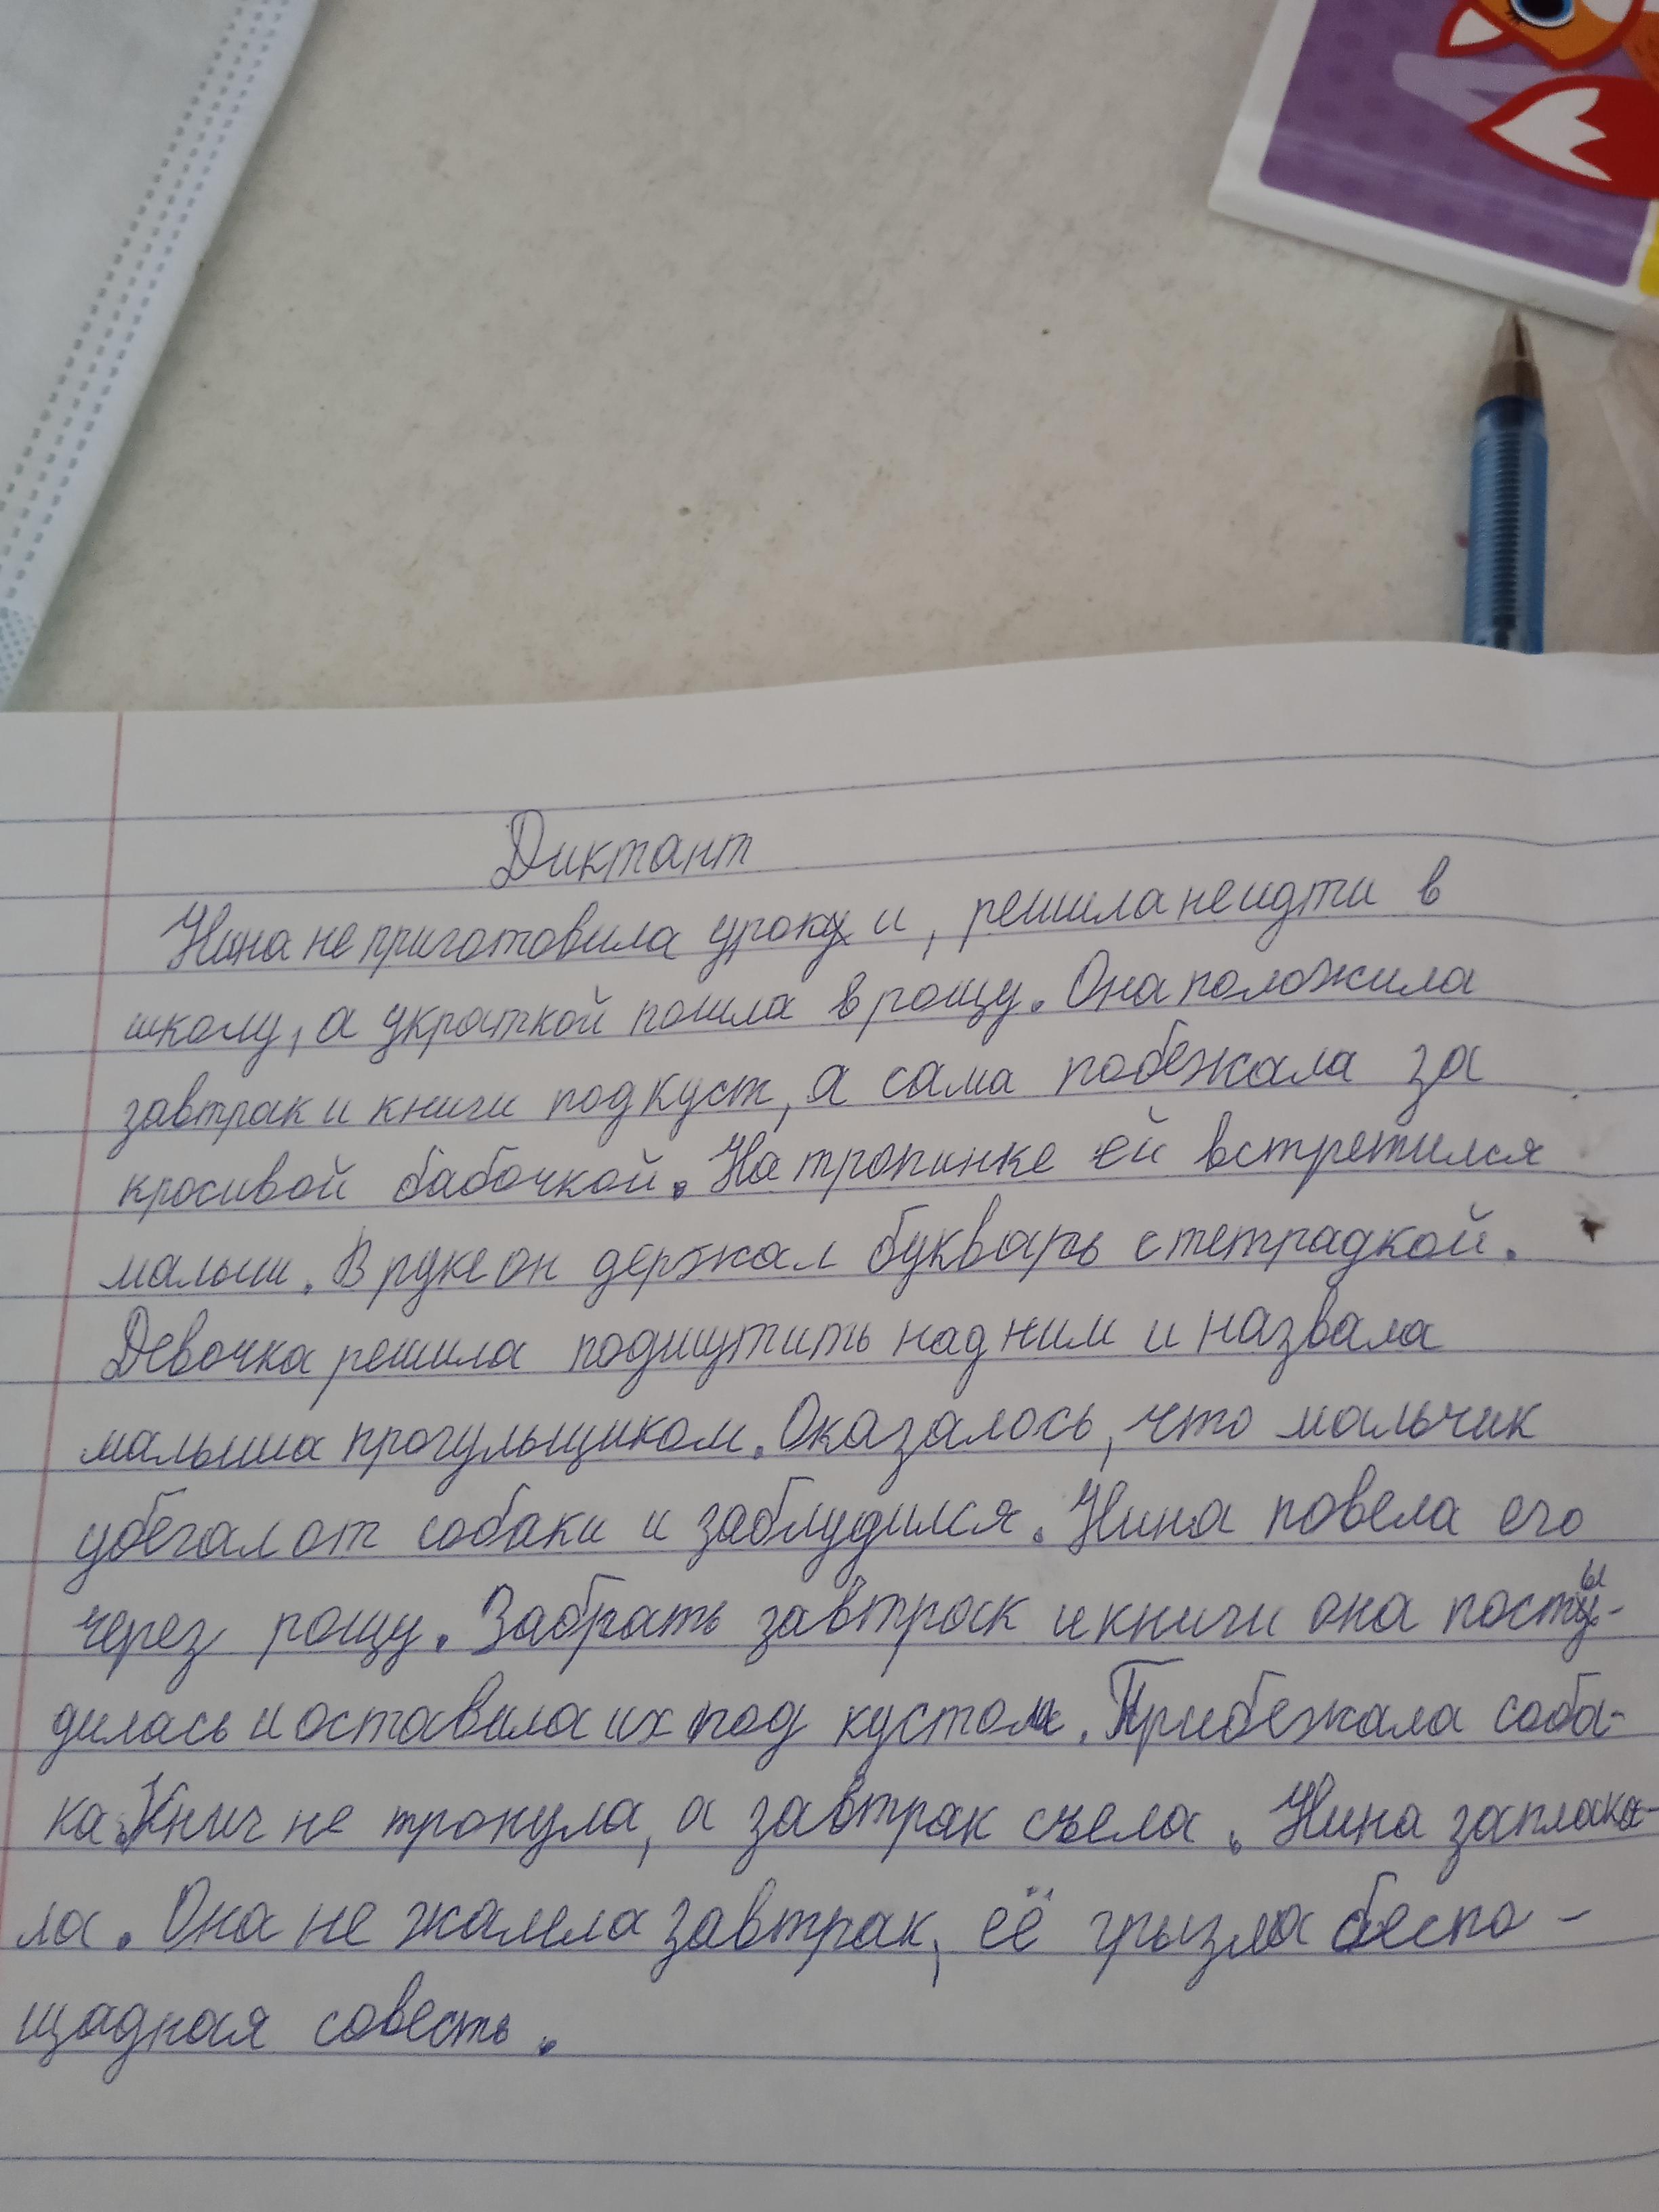 Диктант
Нина не приготовила уроку и, решила не идти в
школу, а украткой пошла в рощу. Она положила
завтрак и книги под куст, а сама побежала за
красивой бабочкой. На тропинке ей встретился
малыш. В руке он держал букварь с тетрадкой.
Девочка решила подшутить над ним и назвала
малыша прогульщиком. Оказалось, что мальчик
убегал от собаки и заблудился. Нина повела его
через рощу. Забрать завтрак и книги она посты-
дилась и оставила их под кустом. Прибежала соба-
ка. Книг не тронула, а завтрак съела. Нина заплака-
ла. Она не жалела завтрак, её грызла беспо-
щадная совесть.